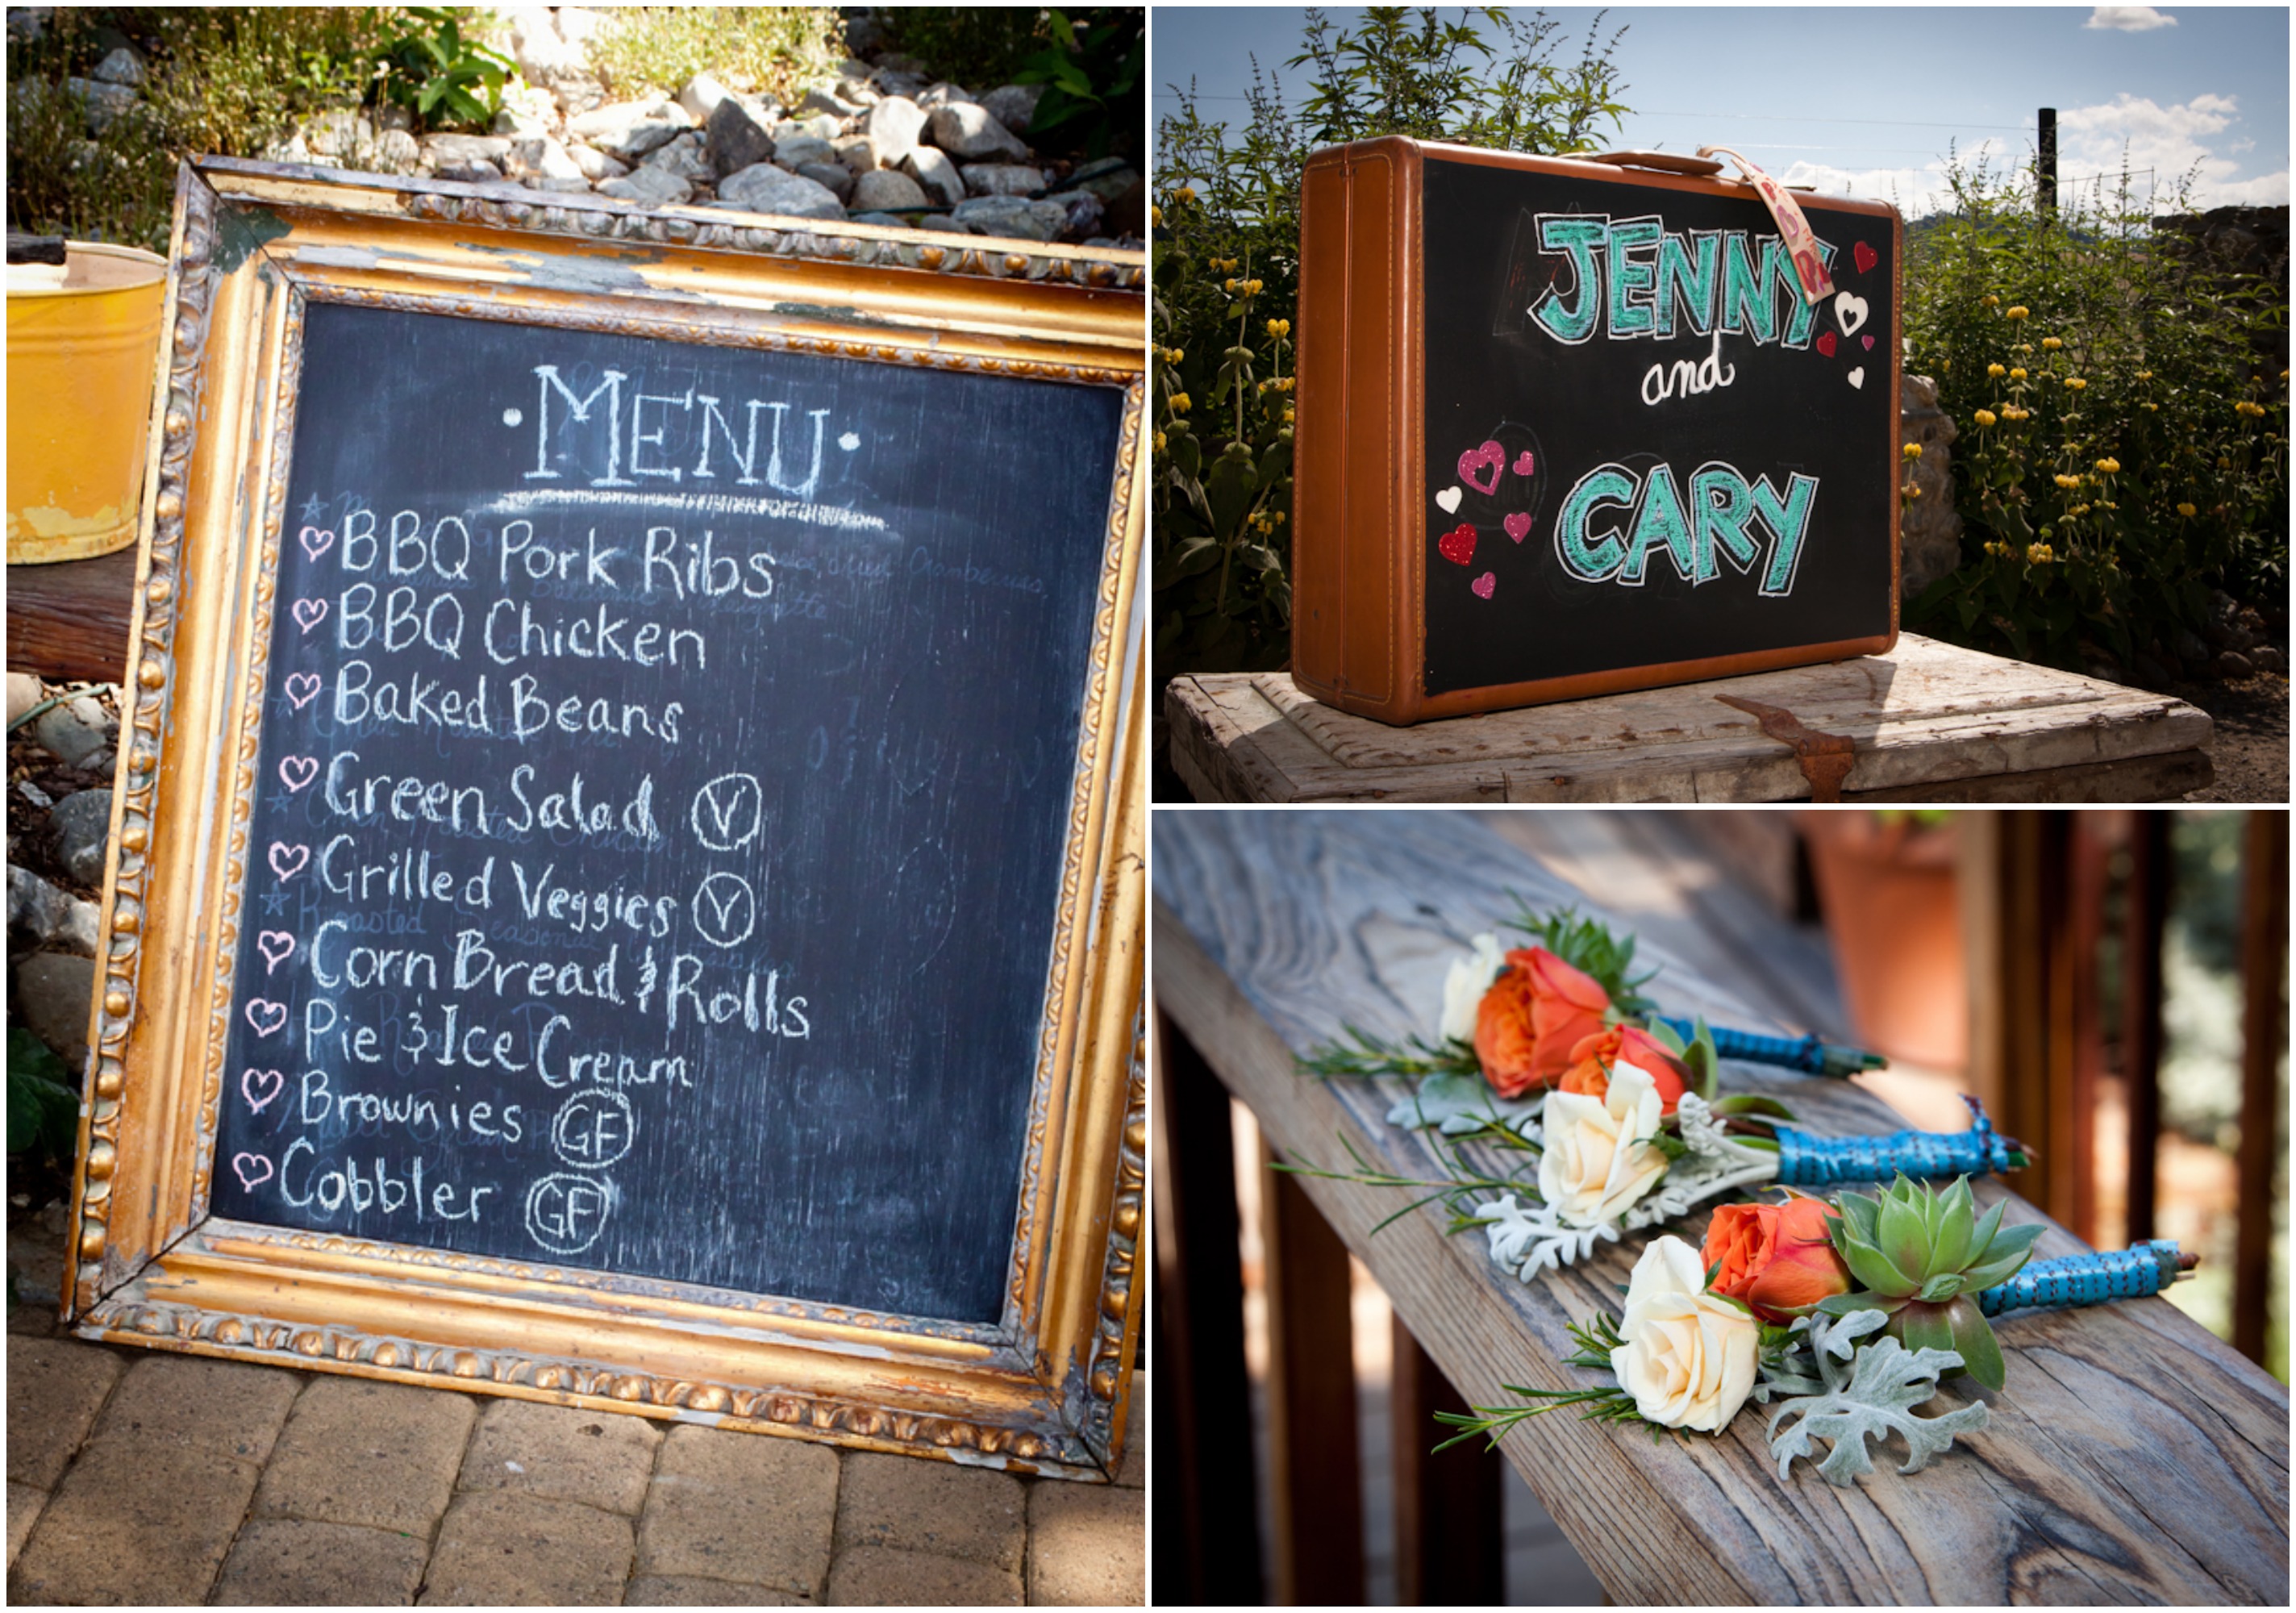 • MENU •
BBQ Pork Ribs
BBQ Chicken
Baked Beans
Green Salad V
Grilled Veggies V
Corn Bread & Rolls
Pie & Ice Cream
Brownies GF
Cobbler GF
JENNY
and
CARY